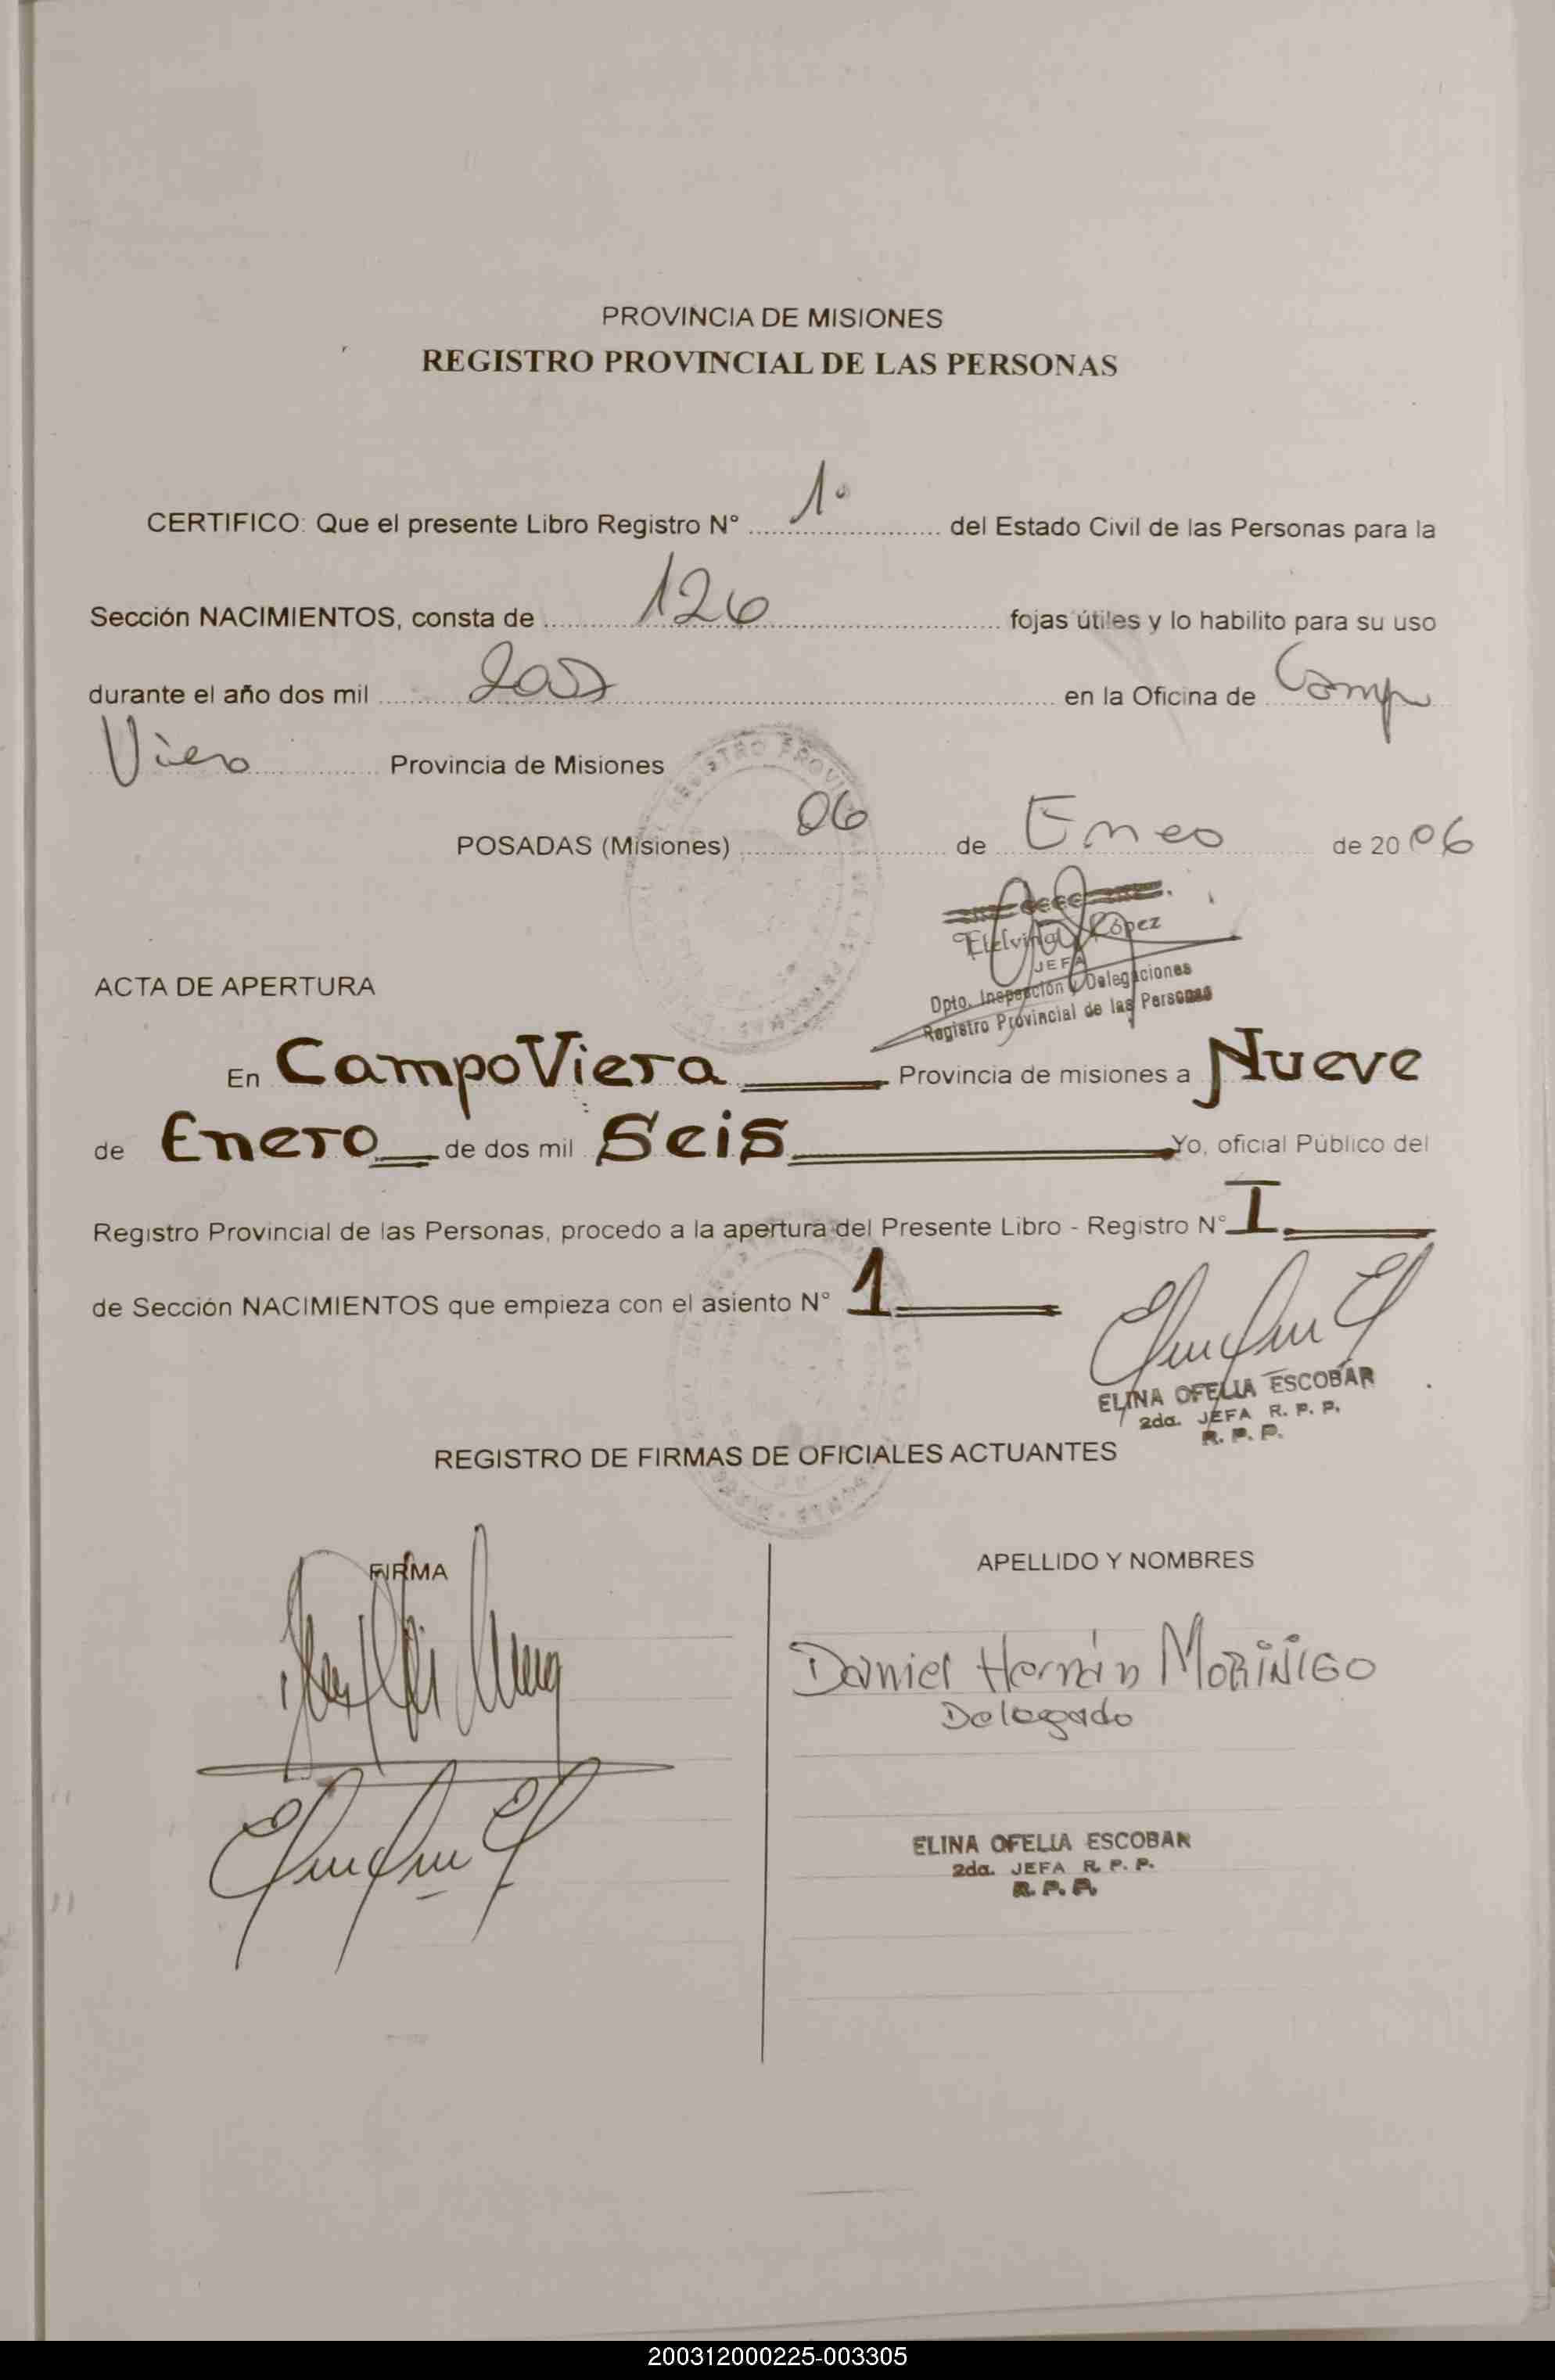 PROVINCIA DE MISIONES
REGISTRO PROVINCIAL DE LAS PERSONAS
CERTIFICO: Que el presente Libro Registro N° 1° del Estado Civil de las Personas para la
Sección NACIMIENTOS, consta de 126 fojas útiles y lo habilito para su uso
durante el año dos mil en la Oficina de Campo
Viera Provincia de Misiones
POSADAS (Misiones) 06 de Enero de 2006
Etelvina López
JEFA
Dpto. Inspección y Delegaciones
Registro Provincial de las Personas
ACTA DE APERTURA
En Campo Viera Provincia de misiones a Nueve
de Enero de dos mil Seis Yo, oficial Público del
Registro Provincial de las Personas, procedo a la apertura del Presente Libro - Registro N° I
de Sección NACIMIENTOS que empieza con el asiento N° 1
ELINA OFELIA ESCOBAR
2da. JEFA R. P. P.
R. P. P.
REGISTRO DE FIRMAS DE OFICIALES ACTUANTES
FIRMA APELLIDO Y NOMBRES
Daniel Hernán MORIÑIGO
Delegado
ELINA OFELIA ESCOBAR
2da. JEFA R. P. P.
R. P. P.
200312000225-003305